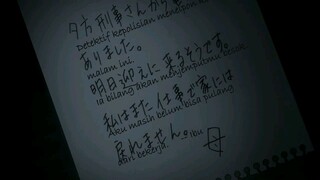 夕方 刑事さんから
Detektif kepolisian menelpon
ありました。
malam ini.
明日迎えに 来るそうです。
Ia bilang akan menjemputmu besok.
私はまだ 仕事で家には
Aku masih belum bisa pulang
戻れません。
dari bekerja. -Ibu
母